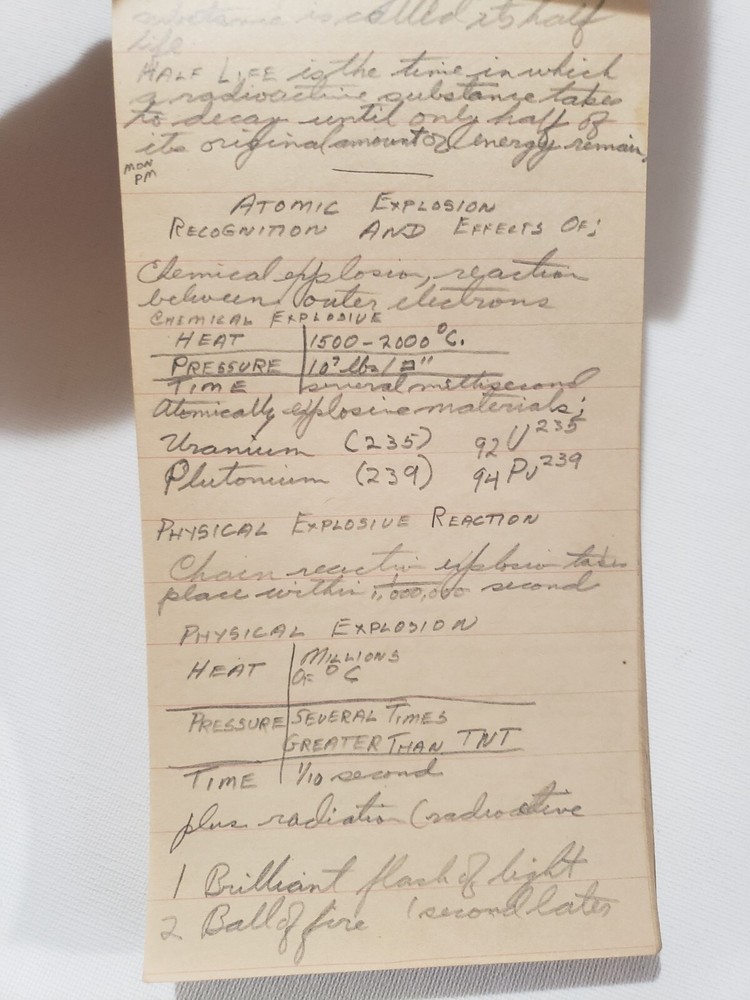 substance is called its half
life
HALF LIFE is the time in which
a radioactive substance takes
to decay until only half of
its original amount of energy remain
MON
PM
ATOMIC EXPLOSION
RECOGNITION AND EFFECTS OF;
Chemical explosion, reaction
between outer electrons
CHEMICAL EXPLOSIVE
HEAT 1500-2000°C.
PRESSURE 10⁷ lbs/□"
TIME several millisecond
Atomically explosive materials;
Uranium (235) 92U235
Plutonium (239) 94Pu239
PHYSICAL EXPLOSIVE REACTION
Chain reaction explosion takes
place within 1/1,000,000 second
PHYSICAL EXPLOSION
HEAT MILLIONS
OF °C
PRESSURE SEVERAL TIMES
GREATER THAN TNT
TIME 1/10 second
plus radiation (radioactive
1 Brilliant flash of light
2 Ball of fire 1 second later